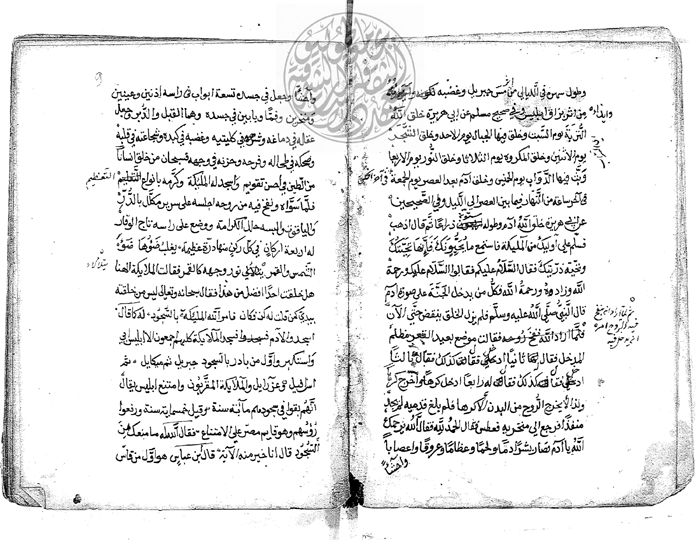 وطول سرس في الليالي من نفس جبريل وغضبه ككونه
من اثر بزاق ابليس وفي صحيح مسلم عن ابي هريرة خلق الله
التربة يوم السبت وخلق فيها الجبال يوم الاحد وخلق الشجر
يوم الاثنين وخلق المكروه يوم الثلاثا وخلق النور يوم الاربعا
وبث فيها الدواب يوم الخميس وخلق ادم بعد العصر يوم الجمعة
في آخر ساعة من النهار فيما بين العصر الى الليل وفي الصحيحين
عن ابي هريرة خلق الله آدم وطوله ستون ذراعا ثم قال اذهب
فسلم على اولئك من الملئكة فاستمع ما يحيونك فانها تحيتك
وتحية ذريتك فقال السلام عليكم فقالوا السلام عليكم ورحمة
الله وزادوه ورحمة الله فكل من يدخل الجنة على صورة ادم
قال النبي صلى الله عليه وسلم فلم يزل الخلق ينقص حتى الآن
فلما اراد الله نفخ روحه فقالت موضع بعيد القعر مظلم
المدخل فقال لها ثانيا ادخلي فقالت كذلك فقال لها ثالثا
ادخلي فقالت كذلك فقال له رابعا ادخل كرها واخرج كرها
ولذا لا يخرج الروح من البدن الا كرها فلم بلغ قدميه لم يجد
منفذا فرجع الى منخريه فعطس فقال الحمد لله فقال الله يرحمك
الله يا ادم فصار بشرا دما ولحما وعظاما وعروقا واعصابا
واحشاء
وايضا وجعل في جسده تسعة ابواب في راسه اذنين وعينين
ومنخرين وفما وبابين في جسده وهما القبل والدبر وجعل
عقله في دماغه وشرهه في كليتيه وغضبه في كبده وشجاعته في قلبه
وضحكه في طحاله وفرحه وحزنه في وجهه فسبحان من خلق انسانا
من الطين واحسن تقويم واسجد له الملئكة وكرمه بانواع التعظيم
فلما سواه ونفخ فيه من روحه اجلسه على سرير مكلل بالدر
والياقوت والبسه حال الكرامة ووضع على راسه تاج الوقار
له اربعة اركان في كل ركن منها درة عظيمة يغلب ضوءها ضوء
الشمس والقمر نور وجهه كالقمر فقالت الملائكة الهنا
هل خلقت احدا افضل من هذا فقال سبحانه وتعالى ليس من خلقته
بيدي كمن قلت له كن فكان فامر الله الملئكة بالسجود له كما قال
اسجدوا لآدم فسجدوا فسجد الملائكة كلهم اجمعون الا ابليس ابى
واستكبر واول من بادر بالسجود جبريل ثم ميكايل ثم
اسرافيل ثم عزرائيل والملائكة المقربون وامتنع ابليس يقال
انهم بقوا في سجودهم مأية سنة وقيل خمسماية سنة ورفعوا
رؤسهم وهو قايم مصر على الامتناع فقال الله له ما منعك من
السجود قال انا خير منه الآية قال ابن عباس هو اول من قاس